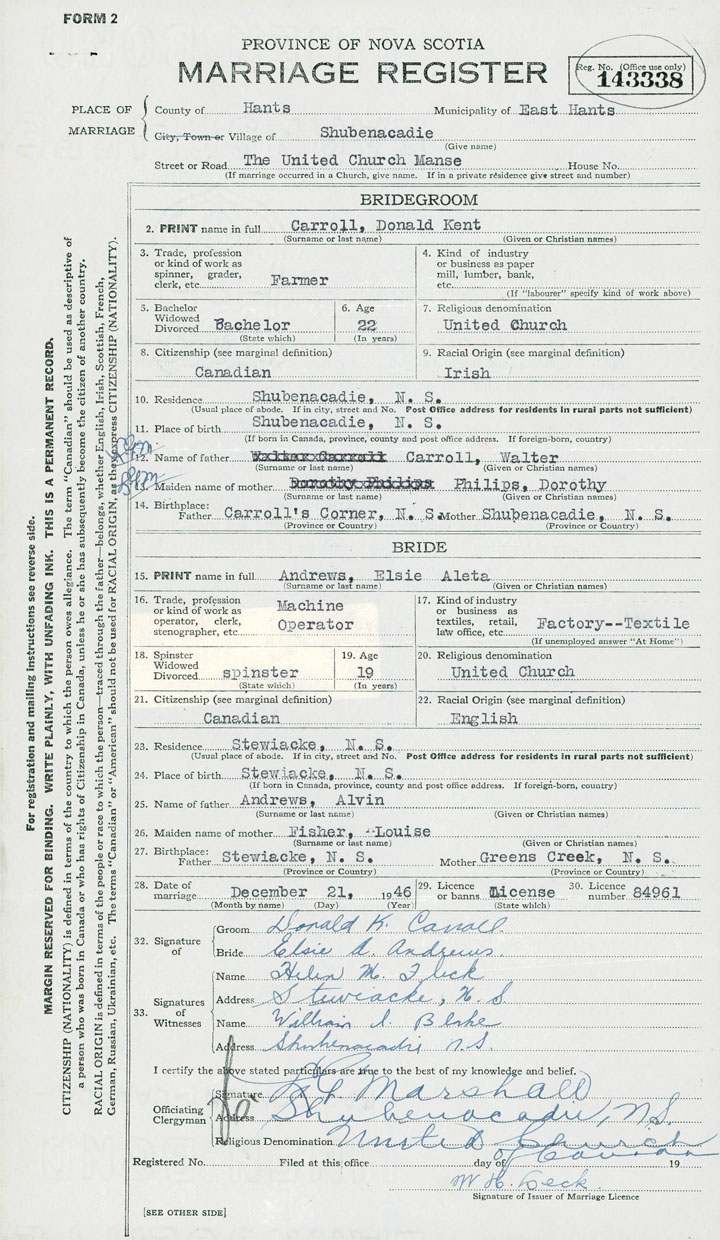 FORM 2
PROVINCE OF NOVA SCOTIA
MARRIAGE REGISTER
Reg. No. (Office use only)
143338
PLACE OF MARRIAGE
County of Hants Municipality of East Hants
City, Town or Village of Shubenacadie
(Give name)
Street or Road The United Church Manse House No.
(If marriage occurred in a Church, give name. If in a private residence give street and number)
BRIDEGROOM
2. PRINT name in full Carroll, Donald Kent
(Surname or last name) (Given or Christian names)
3. Trade, profession or kind of work as spinner, grader, clerk, etc. Farmer
4. Kind of industry or business as paper mill, lumber, bank, etc.
(If "labourer" specify kind of work above)
5. Bachelor Widowed Divorced Bachelor
(State which)
6. Age 22
(In years)
7. Religious denomination
United Church
8. Citizenship (see marginal definition)
Canadian
9. Racial Origin (see marginal definition)
Irish
10. Residence Shubenacadie, N. S.
(Usual place of abode. If in city, street and No. Post Office address for residents in rural parts not sufficient)
11. Place of birth Shubenacadie, N. S.
(If born in Canada, province, county and post office address. If foreign-born, country)
12. Name of father Walter Carroll Carroll, Walter
(Surname or last name) (Given or Christian names)
13. Maiden name of mother Dorothy Philips Philips, Dorothy
(Surname or last name) (Given or Christian names)
14. Birthplace: Father Carroll's Corner, N. S. Mother Shubenacadie, N. S.
(Province or Country) (Province or Country)
BRIDE
15. PRINT name in full Andrews, Elsie Aleta
(Surname or last name) (Given or Christian names)
16. Trade, profession or kind of work as operator, clerk, stenographer, etc. Machine Operator
17. Kind of industry or business as textiles, retail, law office, etc. Factory--Textile
(If unemployed answer "At Home")
18. Spinster Widowed Divorced spinster
(State which)
19. Age
19
(In years)
20. Religious denomination
United Church
21. Citizenship (see marginal definition)
Canadian
22. Racial Origin (see marginal definition)
English
23. Residence Stewiacke, N. S.
(Usual place of abode. If in city, street and No. Post Office address for residents in rural parts not sufficient)
24. Place of birth Stewiacke, N. S.
(If born in Canada, province, county and post office address. If foreign-born, country)
25. Name of father Andrews, Alvin
(Surname or last name) (Given or Christian names)
26. Maiden name of mother Fisher, -Louise
(Surname or last name) (Given or Christian names)
27. Birthplace: Father Stewiacke, N. S. Mother Greens Creek, N. S.
(Province or Country) (Province or Country)
28. Date of marriage December 21, 1946
(Month by name) (Day) (Year)
29. Licence or banns License
(State which)
30. Licence number 84961
32. Signature of
Groom Donald K. Carroll
Bride Elsie A. Andrews.
33. Signatures of Witnesses
Name Helen M. Fleck
Address Stewiacke, N. S.
Name William A. Blake
Address Shubenacadie N.S.
I certify the above stated particulars are true to the best of my knowledge and belief.
Officiating Clergyman
Signature Marshall
Address Shubenacadie, N.S.
Religious Denomination United Church
of Canada
Registered No. Filed at this office day of 19
Signature of Issuer of Marriage Licence
[SEE OTHER SIDE]
For registration and mailing instructions see reverse side.
MARGIN RESERVED FOR BINDING. WRITE PLAINLY, WITH UNFADING INK. THIS IS A PERMANENT RECORD.
CITIZENSHIP (NATIONALITY) is defined in terms of the country to which the person owes allegiance. The term "Canadian" should be used as descriptive of
a person who was born in Canada or who has rights of Citizenship in Canada, unless he or she has subsequently become the citizen of another country.
RACIAL ORIGIN is defined in terms of the people or race to which the person—traced through the father—belongs, whether English, Irish, Scottish, French,
German, Russian, Ukrainian, etc. The terms "Canadian" or "American" should not be used for RACIAL ORIGIN, as they express CITIZENSHIP (NATIONALITY).